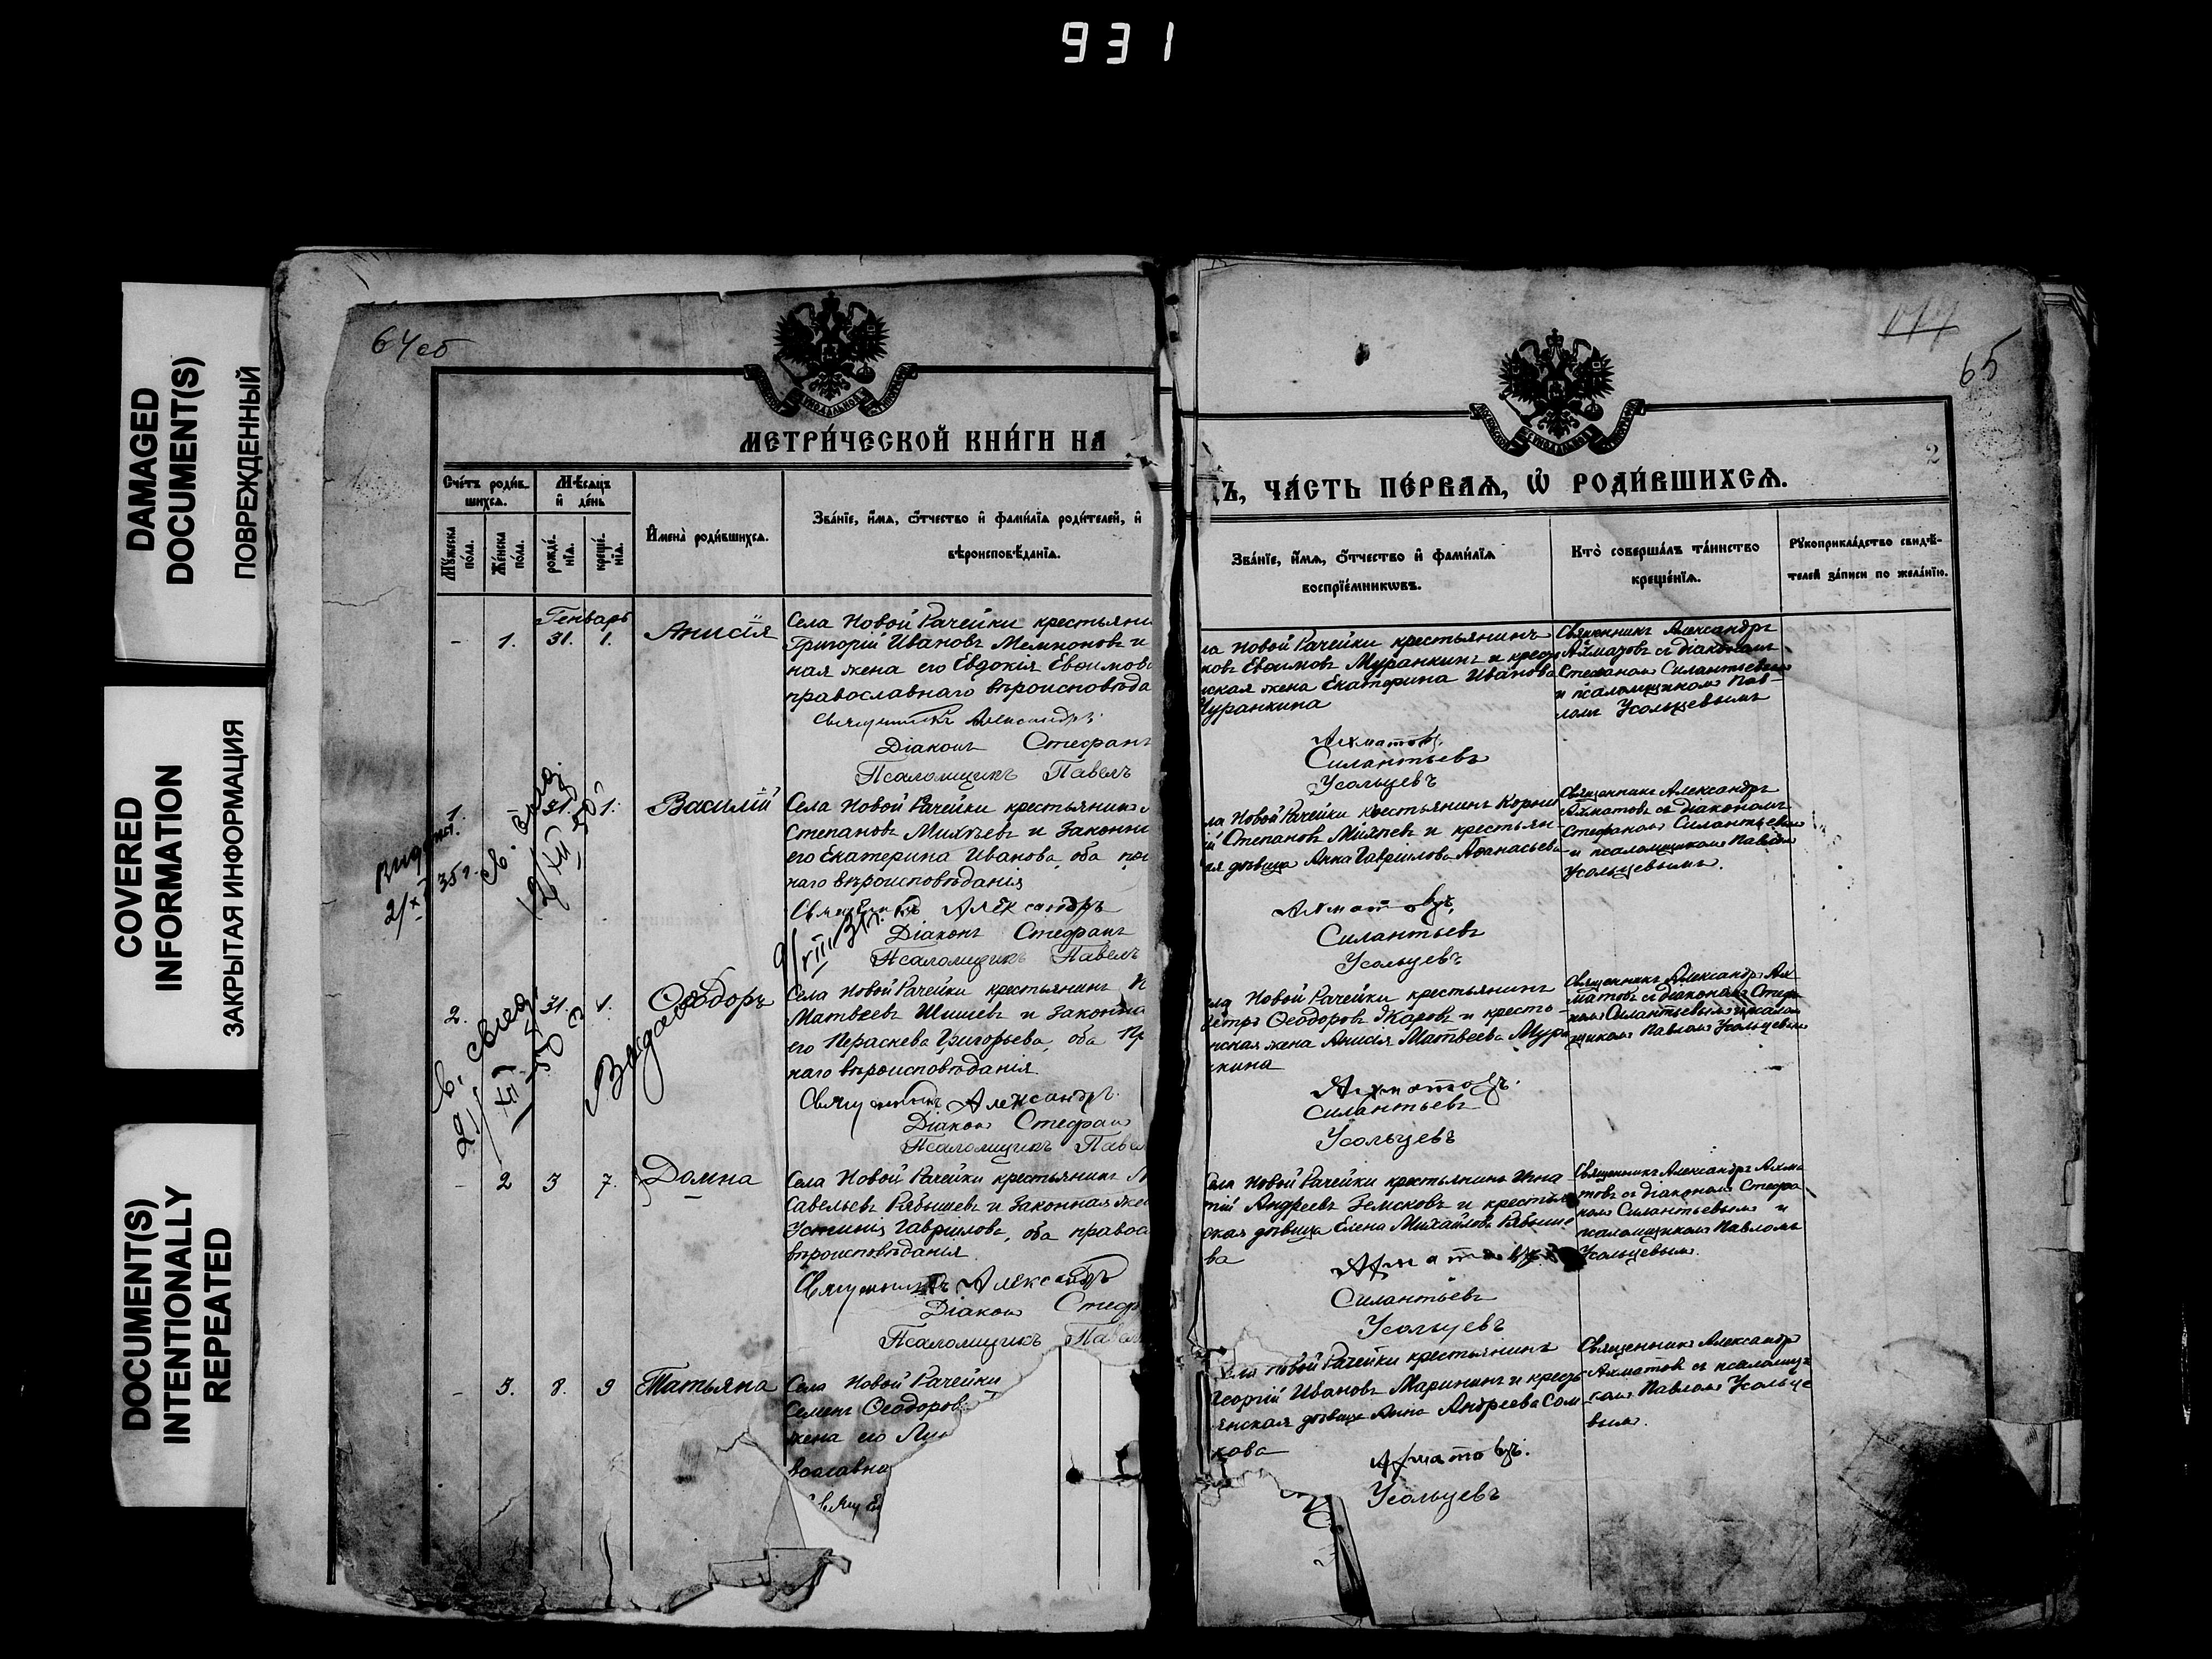 931
DAMAGED
DOCUMENT(S)
ПОВРЕЖДЕННЫЙ
COVERED
INFORMATION
ЗАКРЫТАЯ ИНФОРМАЦИЯ
DOCUMENT(S)
INTENTIONALLY
REPEATED
64об
МЕТРИ́ЧЕСКОЙ КНИ́ГИ НА
Сче́тъ роди́в-
шихсѧ.
Мѣ́сѧцъ
и҆ де́нь
Мꙋ́жеска
по́ла.
Же́нска
по́ла.
рожде́-
нїѧ.
креще́-
нїѧ.
И҆мена̀ роди́вшихсѧ.
Зва́нїе, и҆́мѧ, ѻ҆́тчество и҆ фами́лїѧ роди́телей, и҆
вѣроисповѣ́данїѧ.
Генварь
- 1. 31. 1. Анисія
Села Новой Рачейки крестьяни
Григорій Ивановъ Мемноновъ и
ная жена его Евдокія Евѳимов
православнаго вѣроисповѣда
Священникъ Александръ
Діаконъ Стефанъ
Псаломщикъ Павелъ
1. 31. 1. Василій
Села Новой Рачейки крестьянинъ
Степановъ Михѣевъ и законн
его Екатерина Иванова, оба
наго вѣроисповѣданія
Священникъ Александръ
Діаконъ Стефанъ
Псаломщикъ Павелъ
2. 31. 1. Ѳеодоръ
Села Новой Рачейки крестьянинъ
Матвеевъ Шишевъ и законна
его Параскева Григорьева, оба пр
наго вѣроисповѣданія
Священникъ Александръ
Діаконъ Стефанъ
Псаломщикъ Павел
- 2 3 7. Домна
Села Новой Рачейки крестьянинъ
Савельевъ Рябышевъ и законная же
Устинія Гаврилова, оба правос
вѣроисповѣданія
Священникъ Александръ
Діаконъ Стеф
Псаломщикъ Павел
- 3. 8. 9 Татьяна
Села Новой Рачейки
Семенъ Ѳеодоровъ
жена его
вославна
65
2
ЦЪ, ЧА́СТЬ ПЕ́РВАѦ, Ѡ҆ РОДИ́ВШИХСѦ.
Зва́нїе, и҆́мѧ, ѻ҆́тчество и҆ фами́лїѧ
воспрїе́мникѡвъ.
Кто̀ соверша́лъ та́инство
креще́нїѧ.
Рꙋкоприкла́дство свидѣ́-
телей за́писи по жела́нїю.
ла Новой Рачейки крестьянинъ
ковъ Евѳимовъ Муранкинъ и крест
нская жена Екатерина Иванова
Муранкина
Священникъ Александръ
Ахматовъ съ діакономъ
Стефаномъ Силантьевымъ
и псаломщикомъ Пав-
ломъ Усольцевымъ
Ахматовъ.
Силантьевъ
Усольцевъ
ла Новой Рачейки крестьянинъ Корни
ій Степановъ Михѣевъ и крестьян-
ая дѣвица Анна Гавріилова Аѳанасьева
Священникъ Александръ
Ахматовъ съ діакономъ
Стефаномъ Силантьевымъ
и псаломщикомъ Павломъ
Усольцевымъ.
Ахматовъ,
Силантьевъ
Усольцевъ
ела Новой Рачейки крестьянинъ
Петръ Ѳеодоровъ Жаровъ и кресть-
нская жена Анисія Матвеева Мура
нкина
Священникъ Александръ Ах
матовъ съ діакономъ Стефа
номъ Силантьевымъ и псалом
щикомъ Павломъ Усольцевымъ
Ахматовъ.
Силантьевъ
Усольцевъ
ела Новой Рачейки крестьянинъ Игна
тій Андреевъ Земсковъ и крестьян
ская дѣвица Елена Михайлова Рябыше
ва
Священникъ Александръ Ахма
товъ съ діакономъ Стефа
номъ Силантьевымъ и
псаломщикомъ Павломъ
Усольцевымъ.
Ахматовъ.
Силантьевъ
Усольцевъ
Села Новой Рачейки крестьянинъ
Георгій Ивановъ Марининъ и кресть
янская дѣвица Анна Андреева Сом
кова
Священникъ Александръ
Ахматовъ съ псаломщи
комъ Павломъ Усольце
вымъ.
Ахматовъ.
Усольцевъ